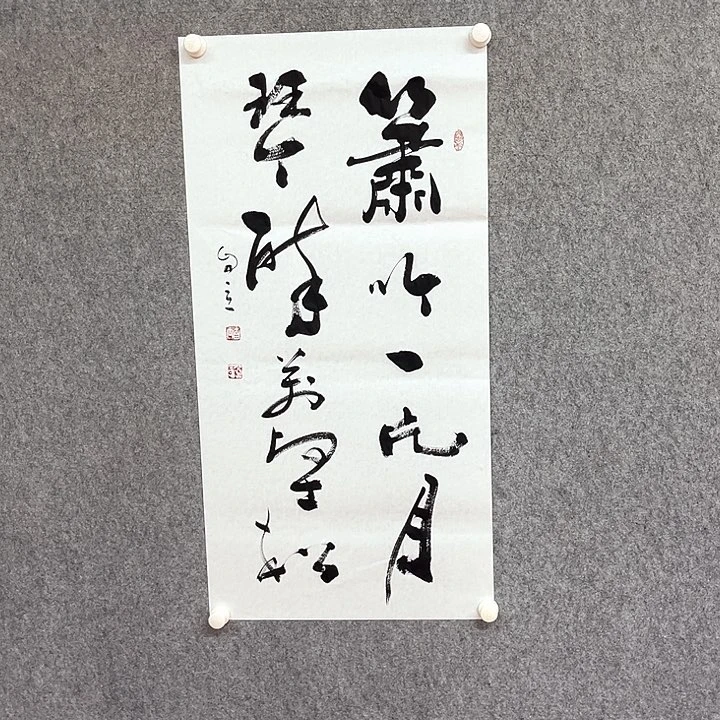 簫吟一片月
琴醉萬壑松